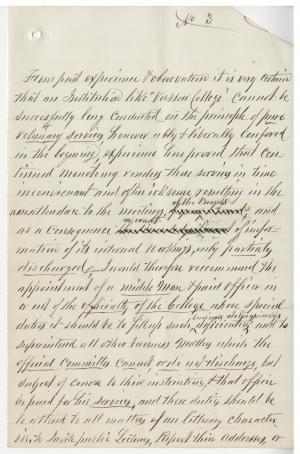 No 3
From past experience & observation it is very certain
that an Institution like "Vassar College" cannot be
successfully long conducted on the principle of pure
voluntary service, however ably & liberally conferred
in the beginning, experience has proved that con-
tinued monotony renders those services in time
inconvenient and often irksome, resulting in the
nonattendance to the meetings of the Board and
as a consequence of infor-
mation of its internal working, only partially
discharged. I would therefore recommend the
appointment of a middle Man & paid officer in
or out of the of the College whose special
duties it should be to fill up such deficiencies and to
superintend all other business matters which the
official Committee cannot or do not discharge, but
subject of course to their instructions, & that officer
be paid for his service, and these duties should be
to attend to all matters of an literary character
viz. to Invite public Lectures, Report their addresses, or